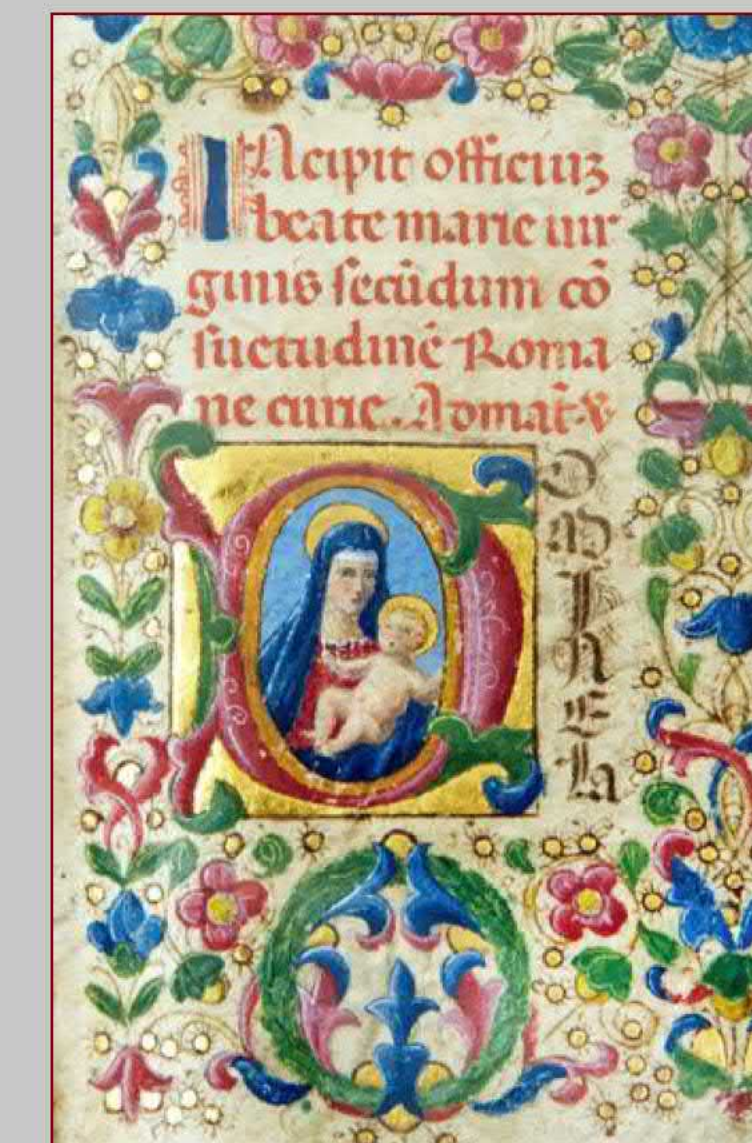 INcipit officiuȝ
beate marie uir
ginis secūdum cō
suetudinē Roma
ne curie. Ad mat̄. V
D
OM
I
N
E
La